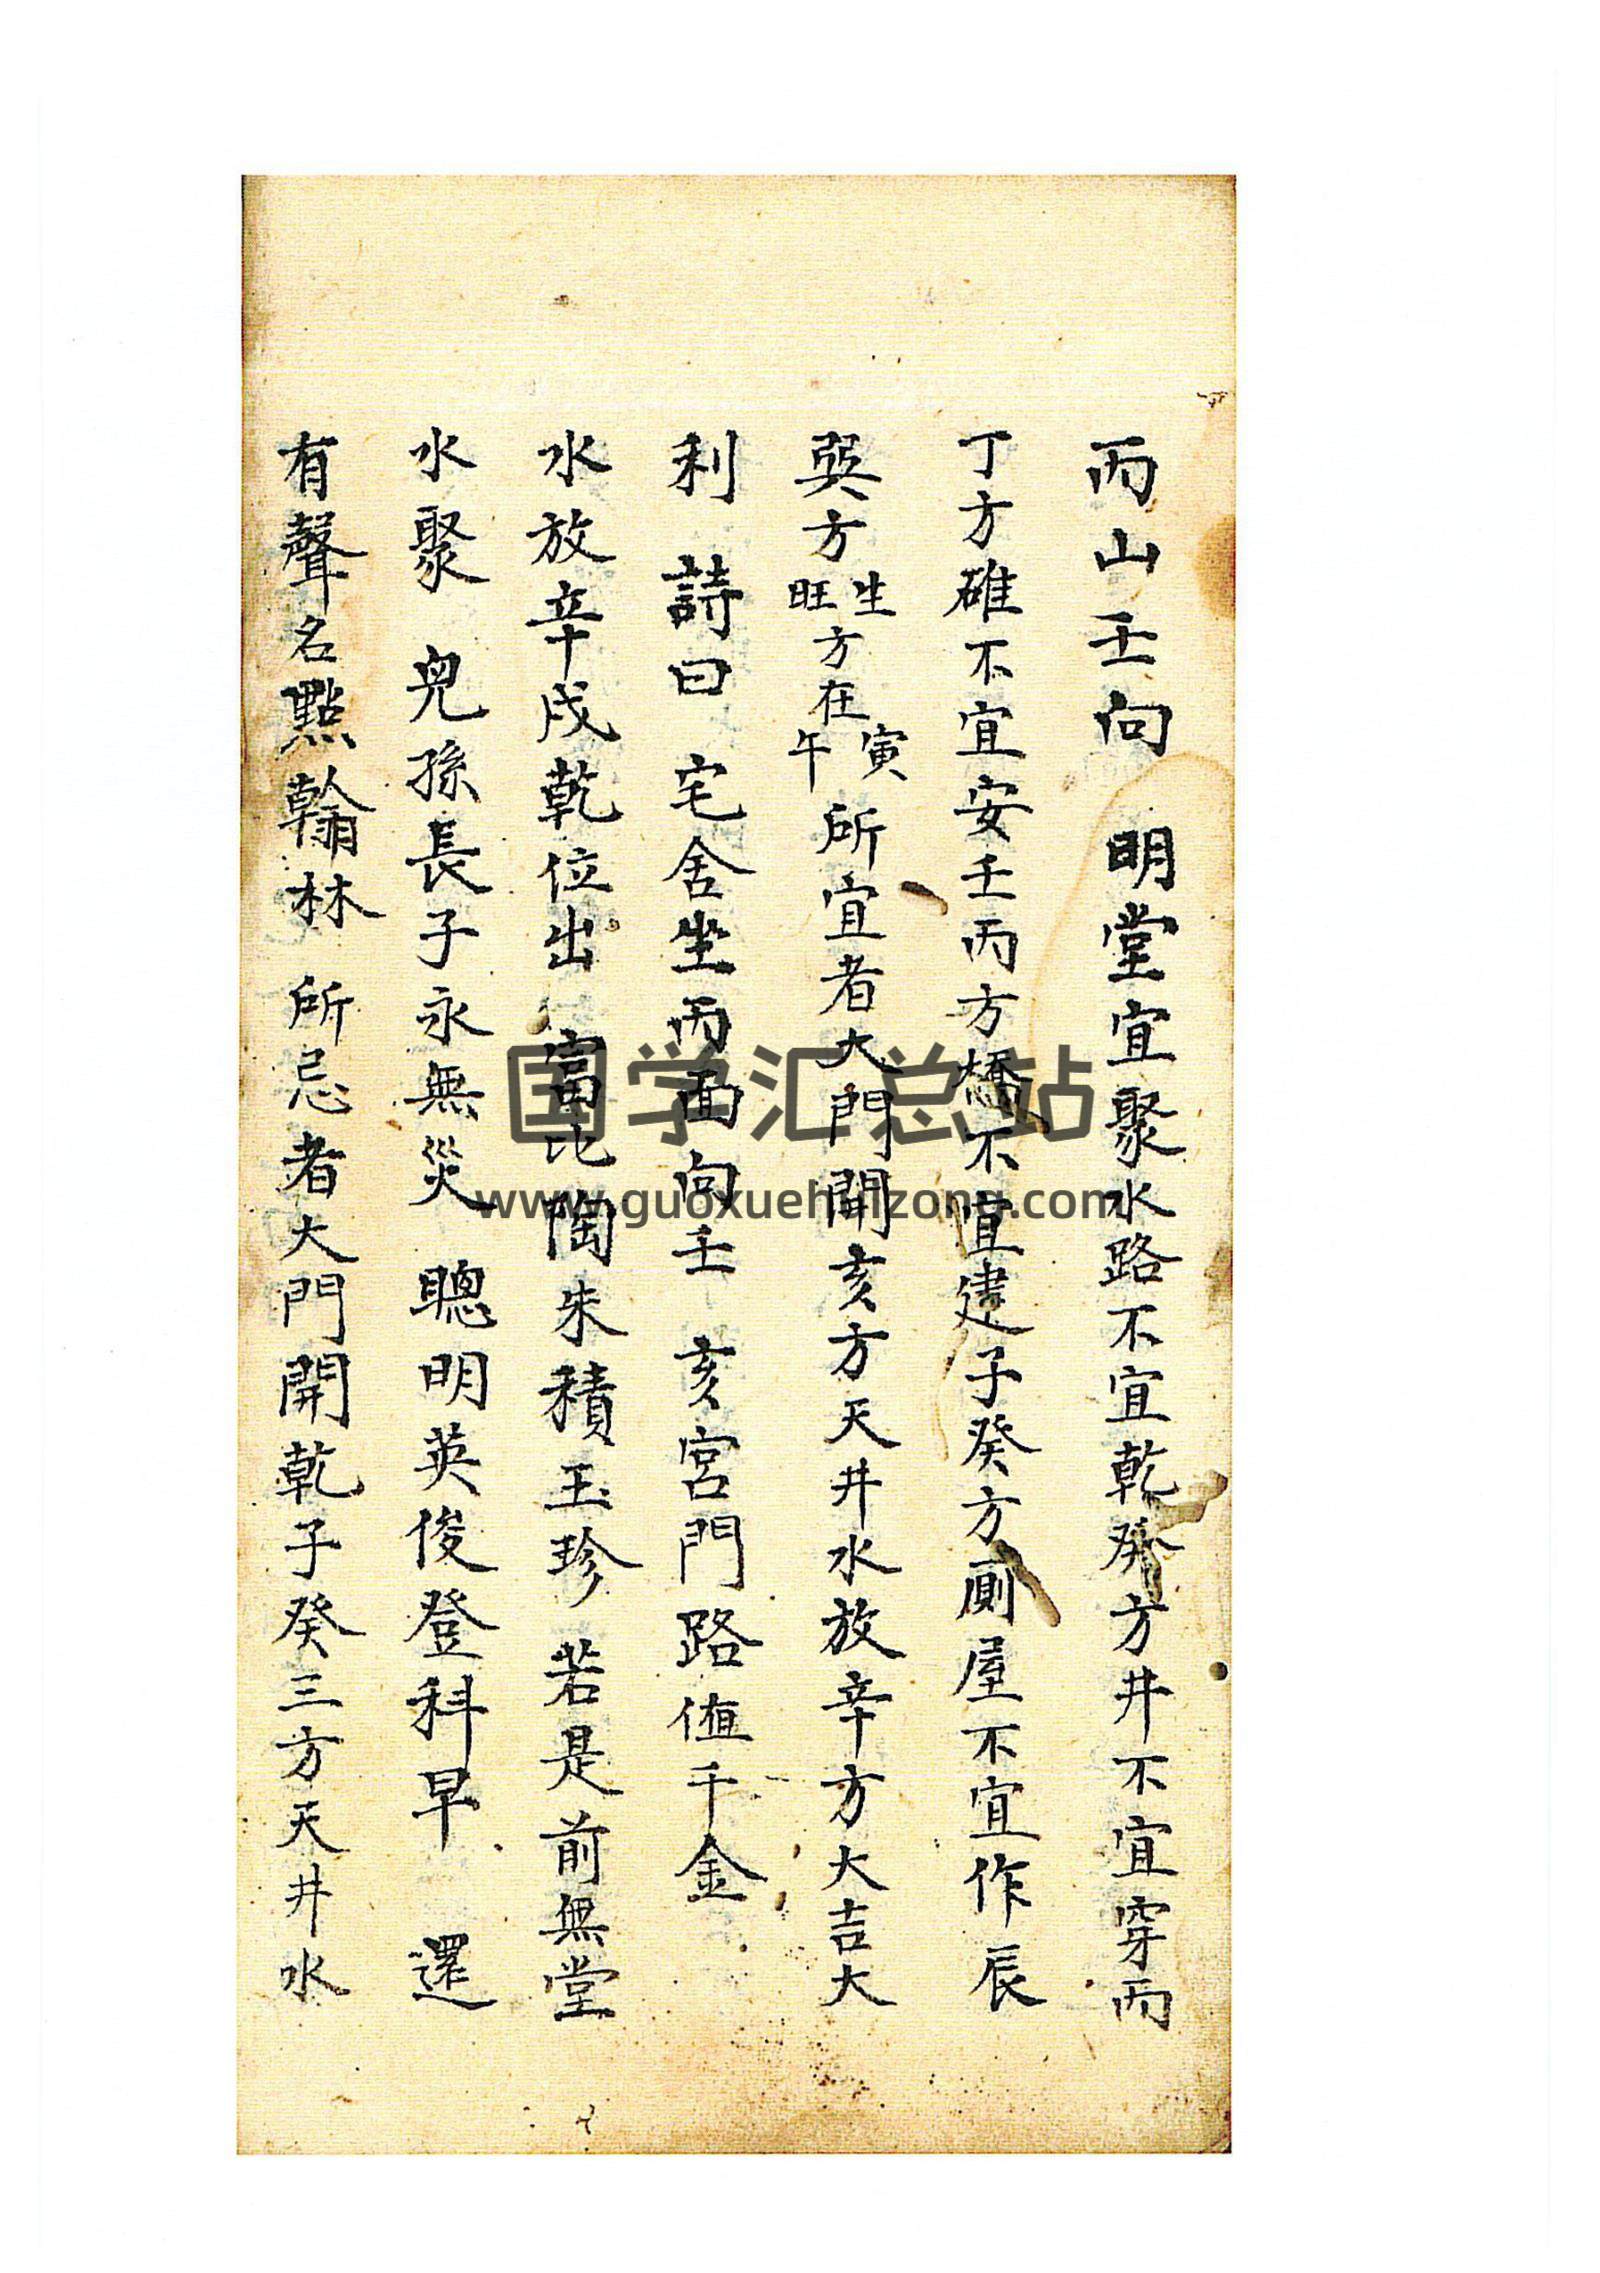 丙山壬向　明堂宜聚水路不宜乾癸方井不宜穿丙
丁方碓不宜安壬丙方橋不宜建子癸方廁屋不宜作辰
巽方生旺方在寅午所宜者大門開亥方天井水放辛方大吉大
利　詩曰　宅舍坐丙面向壬　亥宮門路值千金
水放辛戌乾位出　富比陶朱積玉珍　若是前無堂
水聚　兒孫長子永無災　聰明英俊登科早　還
有聲名點翰林　所忌者大門開乾子癸三方天井水
国学汇总站